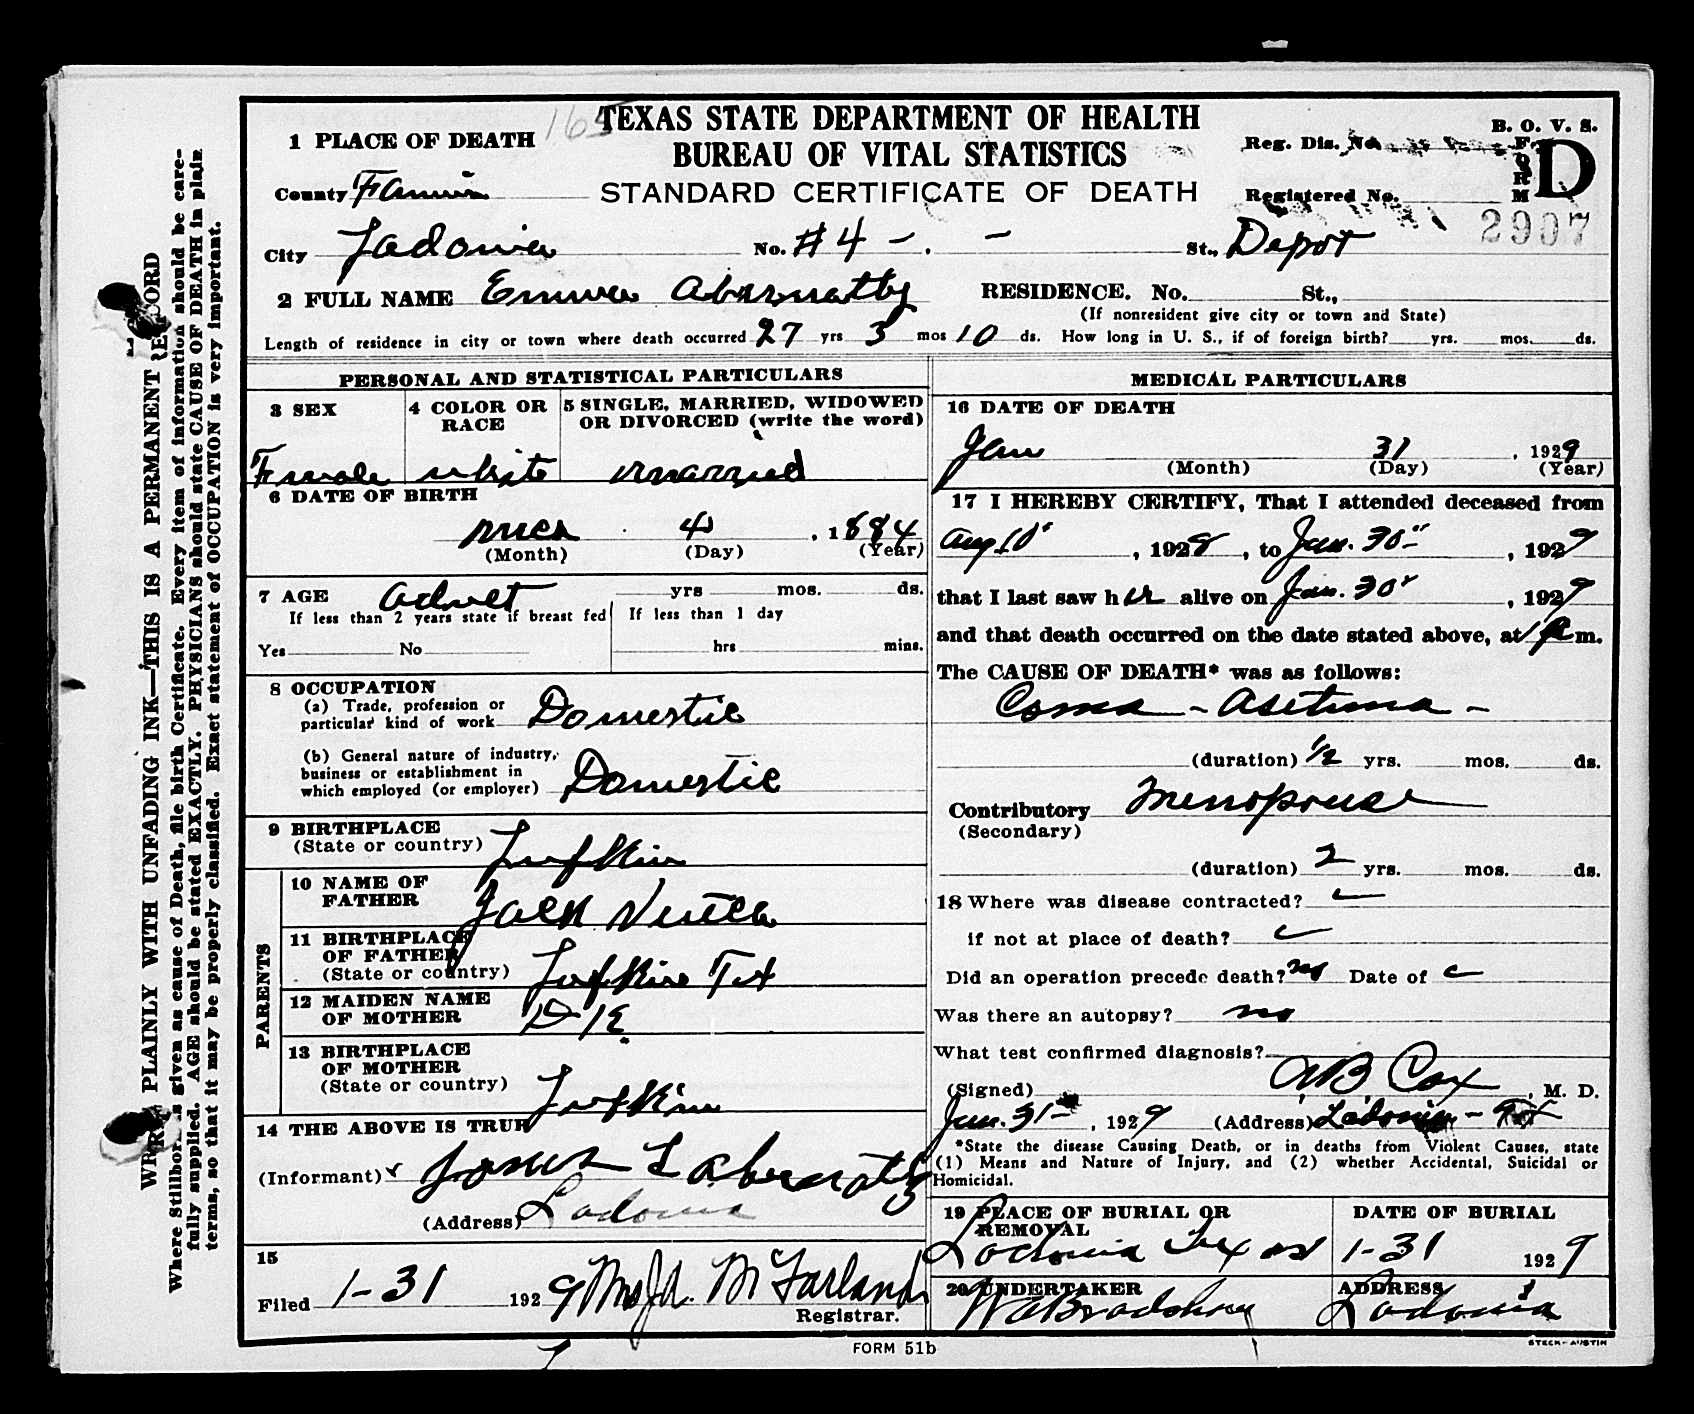 165
TEXAS STATE DEPARTMENT OF HEALTH
BUREAU OF VITAL STATISTICS
STANDARD CERTIFICATE OF DEATH
B. O. V. S.
FORM D
Reg. Dis. No.
Registered No.
2907
1 PLACE OF DEATH
County Fannin
City Ladonia No. #4 - . - St., Depot
2 FULL NAME Emma Abernathy RESIDENCE. No. St.,
(If nonresident give city or town and State)
Length of residence in city or town where death occurred 27 yrs 3 mos 10 ds. How long in U. S., if of foreign birth? yrs. mos. ds.
PERSONAL AND STATISTICAL PARTICULARS
3 SEX
Female
4 COLOR OR RACE
white
5 SINGLE, MARRIED, WIDOWED
OR DIVORCED (write the word)
married
6 DATE OF BIRTH
4, 1884
(Month) (Day) (Year)
7 AGE adult yrs mos. ds.
If less than 2 years state if breast fed
Yes No
If less than 1 day
hrs mins.
8 OCCUPATION
(a) Trade, profession or
particular kind of work Domestic
(b) General nature of industry,
business or establishment in
which employed (or employer) Domestic
9 BIRTHPLACE
(State or country) Lufkin
PARENTS
10 NAME OF
FATHER Jack
11 BIRTHPLACE
OF FATHER
(State or country) Lufkin Tex
12 MAIDEN NAME
OF MOTHER D K
13 BIRTHPLACE
OF MOTHER
(State or country) Lufkin
14 THE ABOVE IS TRUE
(Informant) Abernathy
(Address) Ladonia
15
Filed 1-31 1929 McFarland
Registrar.
MEDICAL PARTICULARS
16 DATE OF DEATH
Jan 31, 1929
(Month) (Day) (Year)
17 I HEREBY CERTIFY, That I attended deceased from
Aug 10", 1928, to Jan. 30", 1929
that I last saw her alive on Jan. 30", 1929
and that death occurred on the date stated above, at 1 m.
The CAUSE OF DEATH* was as follows:
Coma - Asthma -
(duration) 1/2 yrs. mos. ds.
Contributory Menopause
(Secondary)
(duration) 2 yrs. mos. ds.
18 Where was disease contracted?
if not at place of death?
Did an operation precede death? no Date of
Was there an autopsy? no
What test confirmed diagnosis?
(Signed) AB Cox, M. D.
Jan. 31-, 1929 (Address) Ladonia - Tex
*State the disease Causing Death, or in deaths from Violent Causes, state
(1) Means and Nature of Injury, and (2) whether Accidental, Suicidal or
Homicidal.
19 PLACE OF BURIAL OR
REMOVAL
Ladonia Texas
DATE OF BURIAL
1-31 1929
20 UNDERTAKER
Bradshaw
ADDRESS
Ladonia
FORM 51b
STECK-AUSTIN
WRITE PLAINLY WITH UNFADING INK—THIS IS A PERMANENT RECORD
Where Stillborn is given as cause of Death, file birth Certificate. Every item of information should be care-
fully supplied. AGE should be stated EXACTLY. PHYSICIANS should state CAUSE OF DEATH in plain
terms, so that it may be properly classified. Exact statement of OCCUPATION is very important.